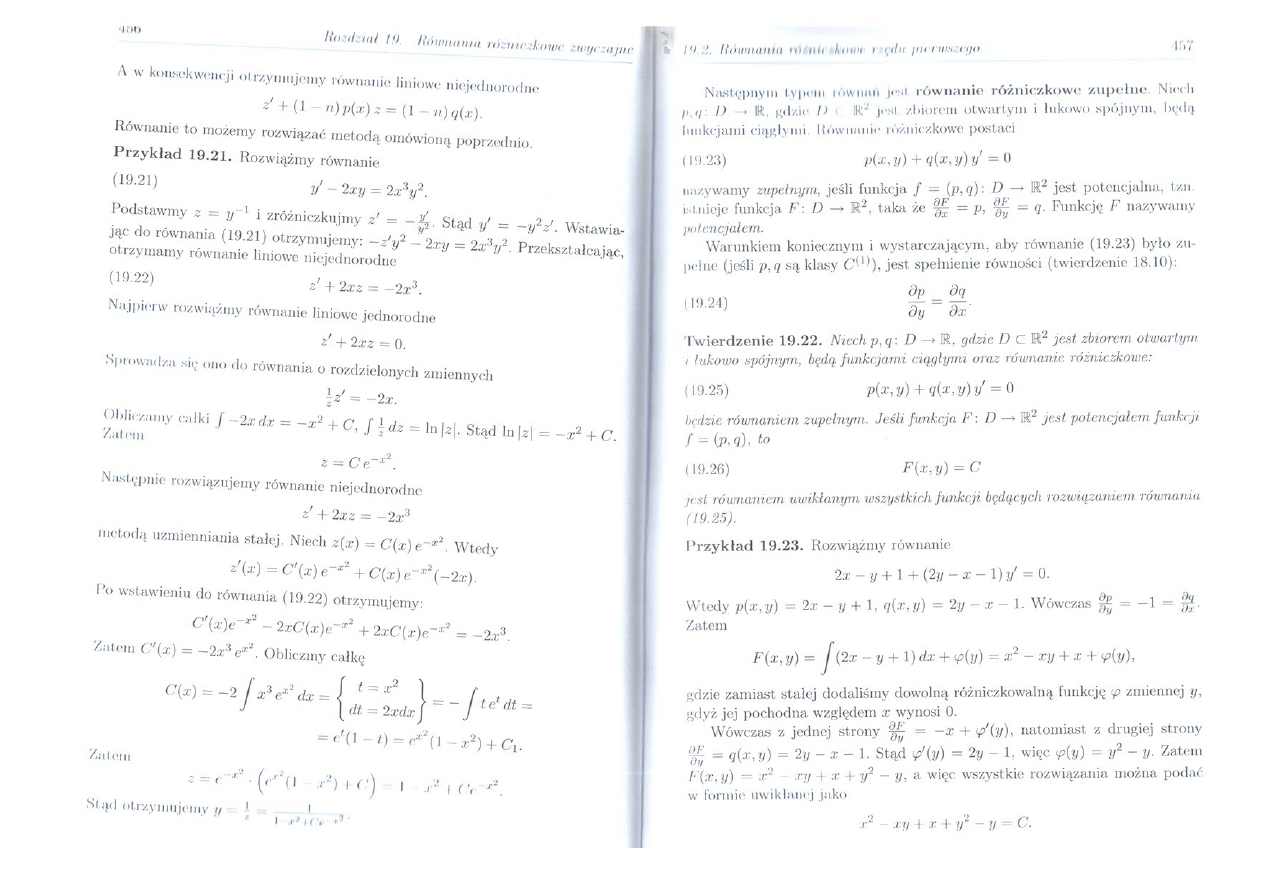 450
Rozdział 19. Równania różniczkowe zwyczajne
A w konsekwencji otrzymujemy równanie liniowe niejednorodne
z′ + (1 − n) p(x) z = (1 − n) q(x).
Równanie to możemy rozwiązać metodą omówioną poprzednio.
Przykład 19.21. Rozwiążmy równanie
(19.21) y′ − 2xy = 2x³y².
Podstawmy z = y⁻¹ i zróżniczkujmy z′ = −y′/y². Stąd y′ = −y²z′. Wstawia-
jąc do równania (19.21) otrzymujemy: −z′y² − 2xy = 2x³y². Przekształcając,
otrzymamy równanie liniowe niejednorodne
(19.22) z′ + 2xz = −2x³.
Najpierw rozwiążmy równanie liniowe jednorodne
z′ + 2xz = 0.
Sprowadza się ono do równania o rozdzielonych zmiennych
1/z z′ = −2x.
Obliczamy całki ∫ −2x dx = −x² + C, ∫ 1/z dz = ln |z|. Stąd ln |z| = −x² + C.
Zatem
z = C e^{−x²}.
Następnie rozwiązujemy równanie niejednorodne
z′ + 2xz = −2x³
metodą uzmienniania stałej. Niech z(x) = C(x) e^{−x²}. Wtedy
z′(x) = C′(x) e^{−x²} + C(x) e^{−x²}(−2x).
Po wstawieniu do równania (19.22) otrzymujemy:
C′(x)e^{−x²} − 2xC(x)e^{−x²} + 2xC(x)e^{−x²} = −2x³.
Zatem C′(x) = −2x³ e^{x²}. Obliczmy całkę
C(x) = −2 ∫ x³ e^{x²} dx = { t = x² dt = 2xdx } = − ∫ t eᵗ dt =
= eᵗ(1 − t) = e^{x²}(1 − x²) + C₁.
Zatem
z = e^{−x²} · (e^{x²}(1 − x²) + C) = 1 − x² + Ce^{−x²}.
Stąd otrzymujemy y = 1/z = 1/(1−x²+Ce^{−x²}).
19.2. Równania różniczkowe rzędu pierwszego
457
Następnym typem równań jest równanie różniczkowe zupełne. Niech
p, q: D → ℝ, gdzie D ⊂ ℝ² jest zbiorem otwartym i łukowo spójnym, będą
funkcjami ciągłymi. Równanie różniczkowe postaci
(19.23) p(x, y) + q(x, y) y′ = 0
nazywamy zupełnym, jeśli funkcja f = (p, q): D → ℝ² jest potencjalna, tzn.
istnieje funkcja F: D → ℝ², taka że ∂F/∂x = p, ∂F/∂y = q. Funkcję F nazywamy
potencjałem.
Warunkiem koniecznym i wystarczającym, aby równanie (19.23) było zu-
pełne (jeśli p, q są klasy C⁽¹⁾), jest spełnienie równości (twierdzenie 18.10):
(19.24) ∂p/∂y = ∂q/∂x.
Twierdzenie 19.22. Niech p, q: D → ℝ, gdzie D ⊂ ℝ² jest zbiorem otwartym
i łukowo spójnym, będą funkcjami ciągłymi oraz równanie różniczkowe:
(19.25) p(x, y) + q(x, y) y′ = 0
będzie równaniem zupełnym. Jeśli funkcja F: D → ℝ² jest potencjałem funkcji
f = (p, q), to
(19.26) F(x, y) = C
jest równaniem uwikłanym wszystkich funkcji będących rozwiązaniem równania
(19.25).
Przykład 19.23. Rozwiążmy równanie
2x − y + 1 + (2y − x − 1) y′ = 0.
Wtedy p(x, y) = 2x − y + 1, q(x, y) = 2y − x − 1. Wówczas ∂p/∂y = −1 = ∂q/∂x.
Zatem
F(x, y) = ∫ (2x − y + 1) dx + φ(y) = x² − xy + x + φ(y),
gdzie zamiast stałej dodaliśmy dowolną różniczkowalną funkcję φ zmiennej y,
gdyż jej pochodna względem x wynosi 0.
Wówczas z jednej strony ∂F/∂y = −x + φ′(y), natomiast z drugiej strony
∂F/∂y = q(x, y) = 2y − x − 1. Stąd φ′(y) = 2y − 1, więc φ(y) = y² − y. Zatem
F(x, y) = x² − xy + x + y² − y, a więc wszystkie rozwiązania można podać
w formie uwikłanej jako
x² − xy + x + y² − y = C.